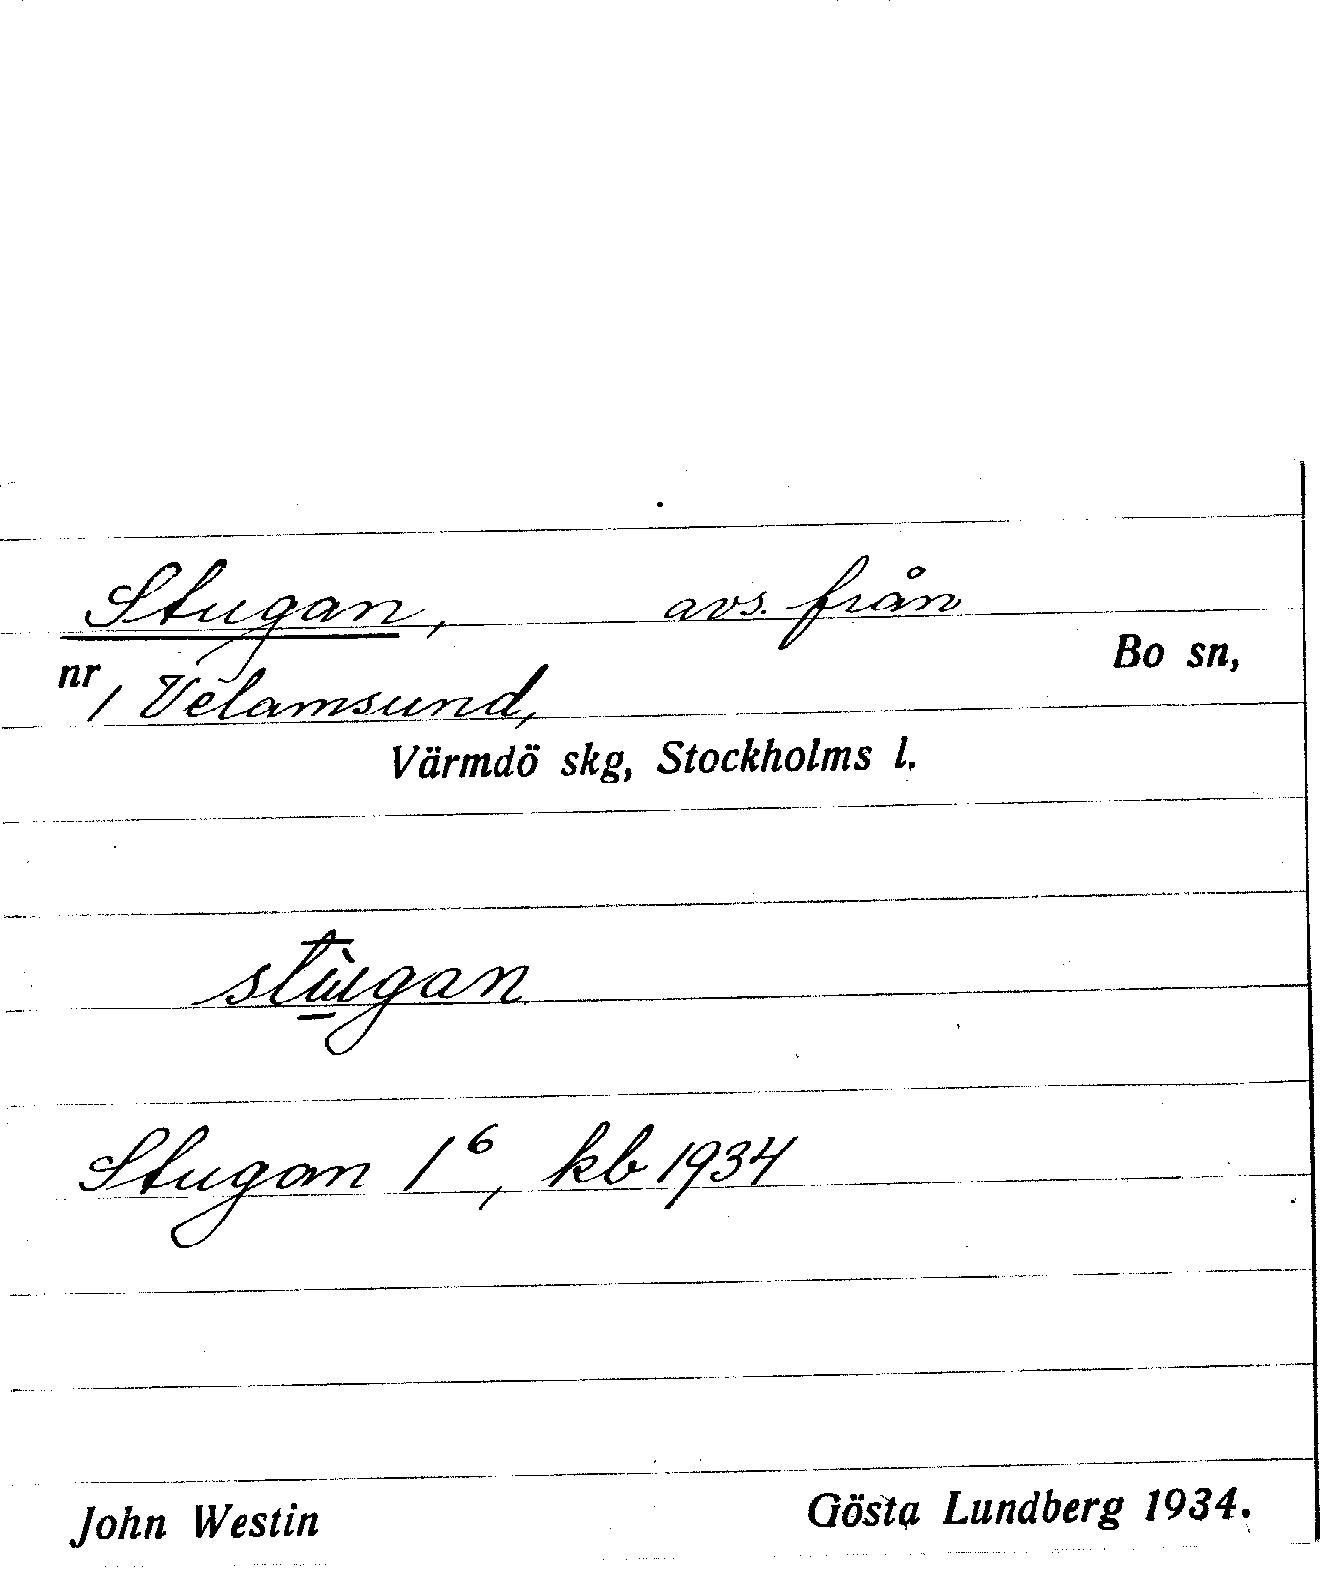 Stugan, avs. från
Bo sn,
nr 1 Velamsund,
Värmdö skg, Stockholms l.
stùgan
Stugan 1⁶, kb 1934
John Westin Gösta Lundberg 1934.